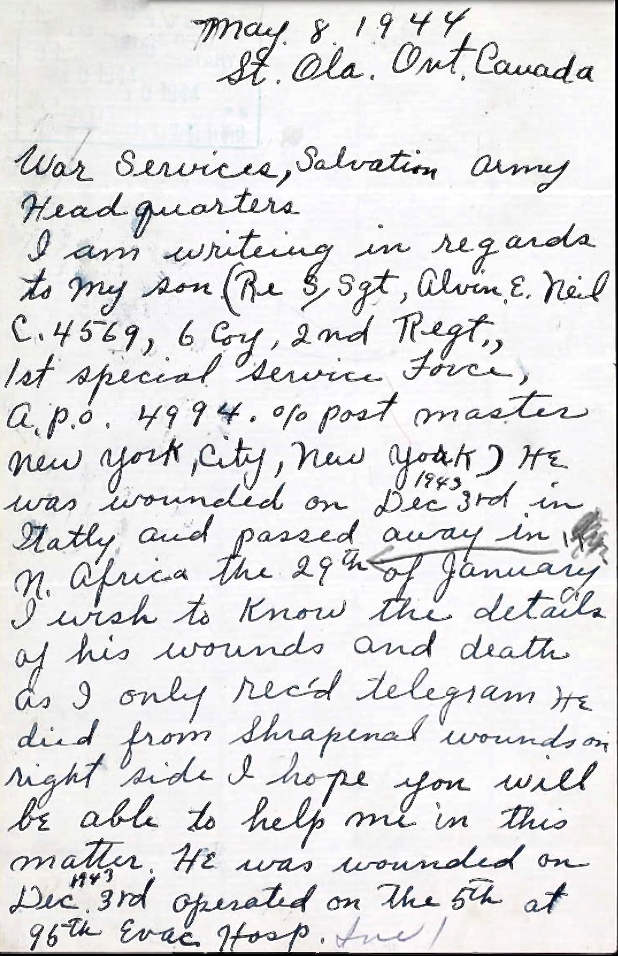 May 8 1944
St. Ola. Ont. Canada
War Services, Salvation Army
Headquarters
I am writeing in regards
to my son (Re S/Sgt, Alvin. E. Neil
C. 4569, 6 Coy, 2nd Regt.,
1st special service Force,
A.P.O. 4994. c/o post master
New York, City, New York) He
was wounded on Dec 3rd 1943 in
Itatly and passed away in
N. Africa the 29th of January
I wish to know the details
of his wounds and death
as I only rec'd telegram He
died from Shrapenal wounds on
right side I hope you will
be able to help me in this
matter. He was wounded on
Dec. 3rd 1943 operated on the 5th at
95th Evac Hosp.